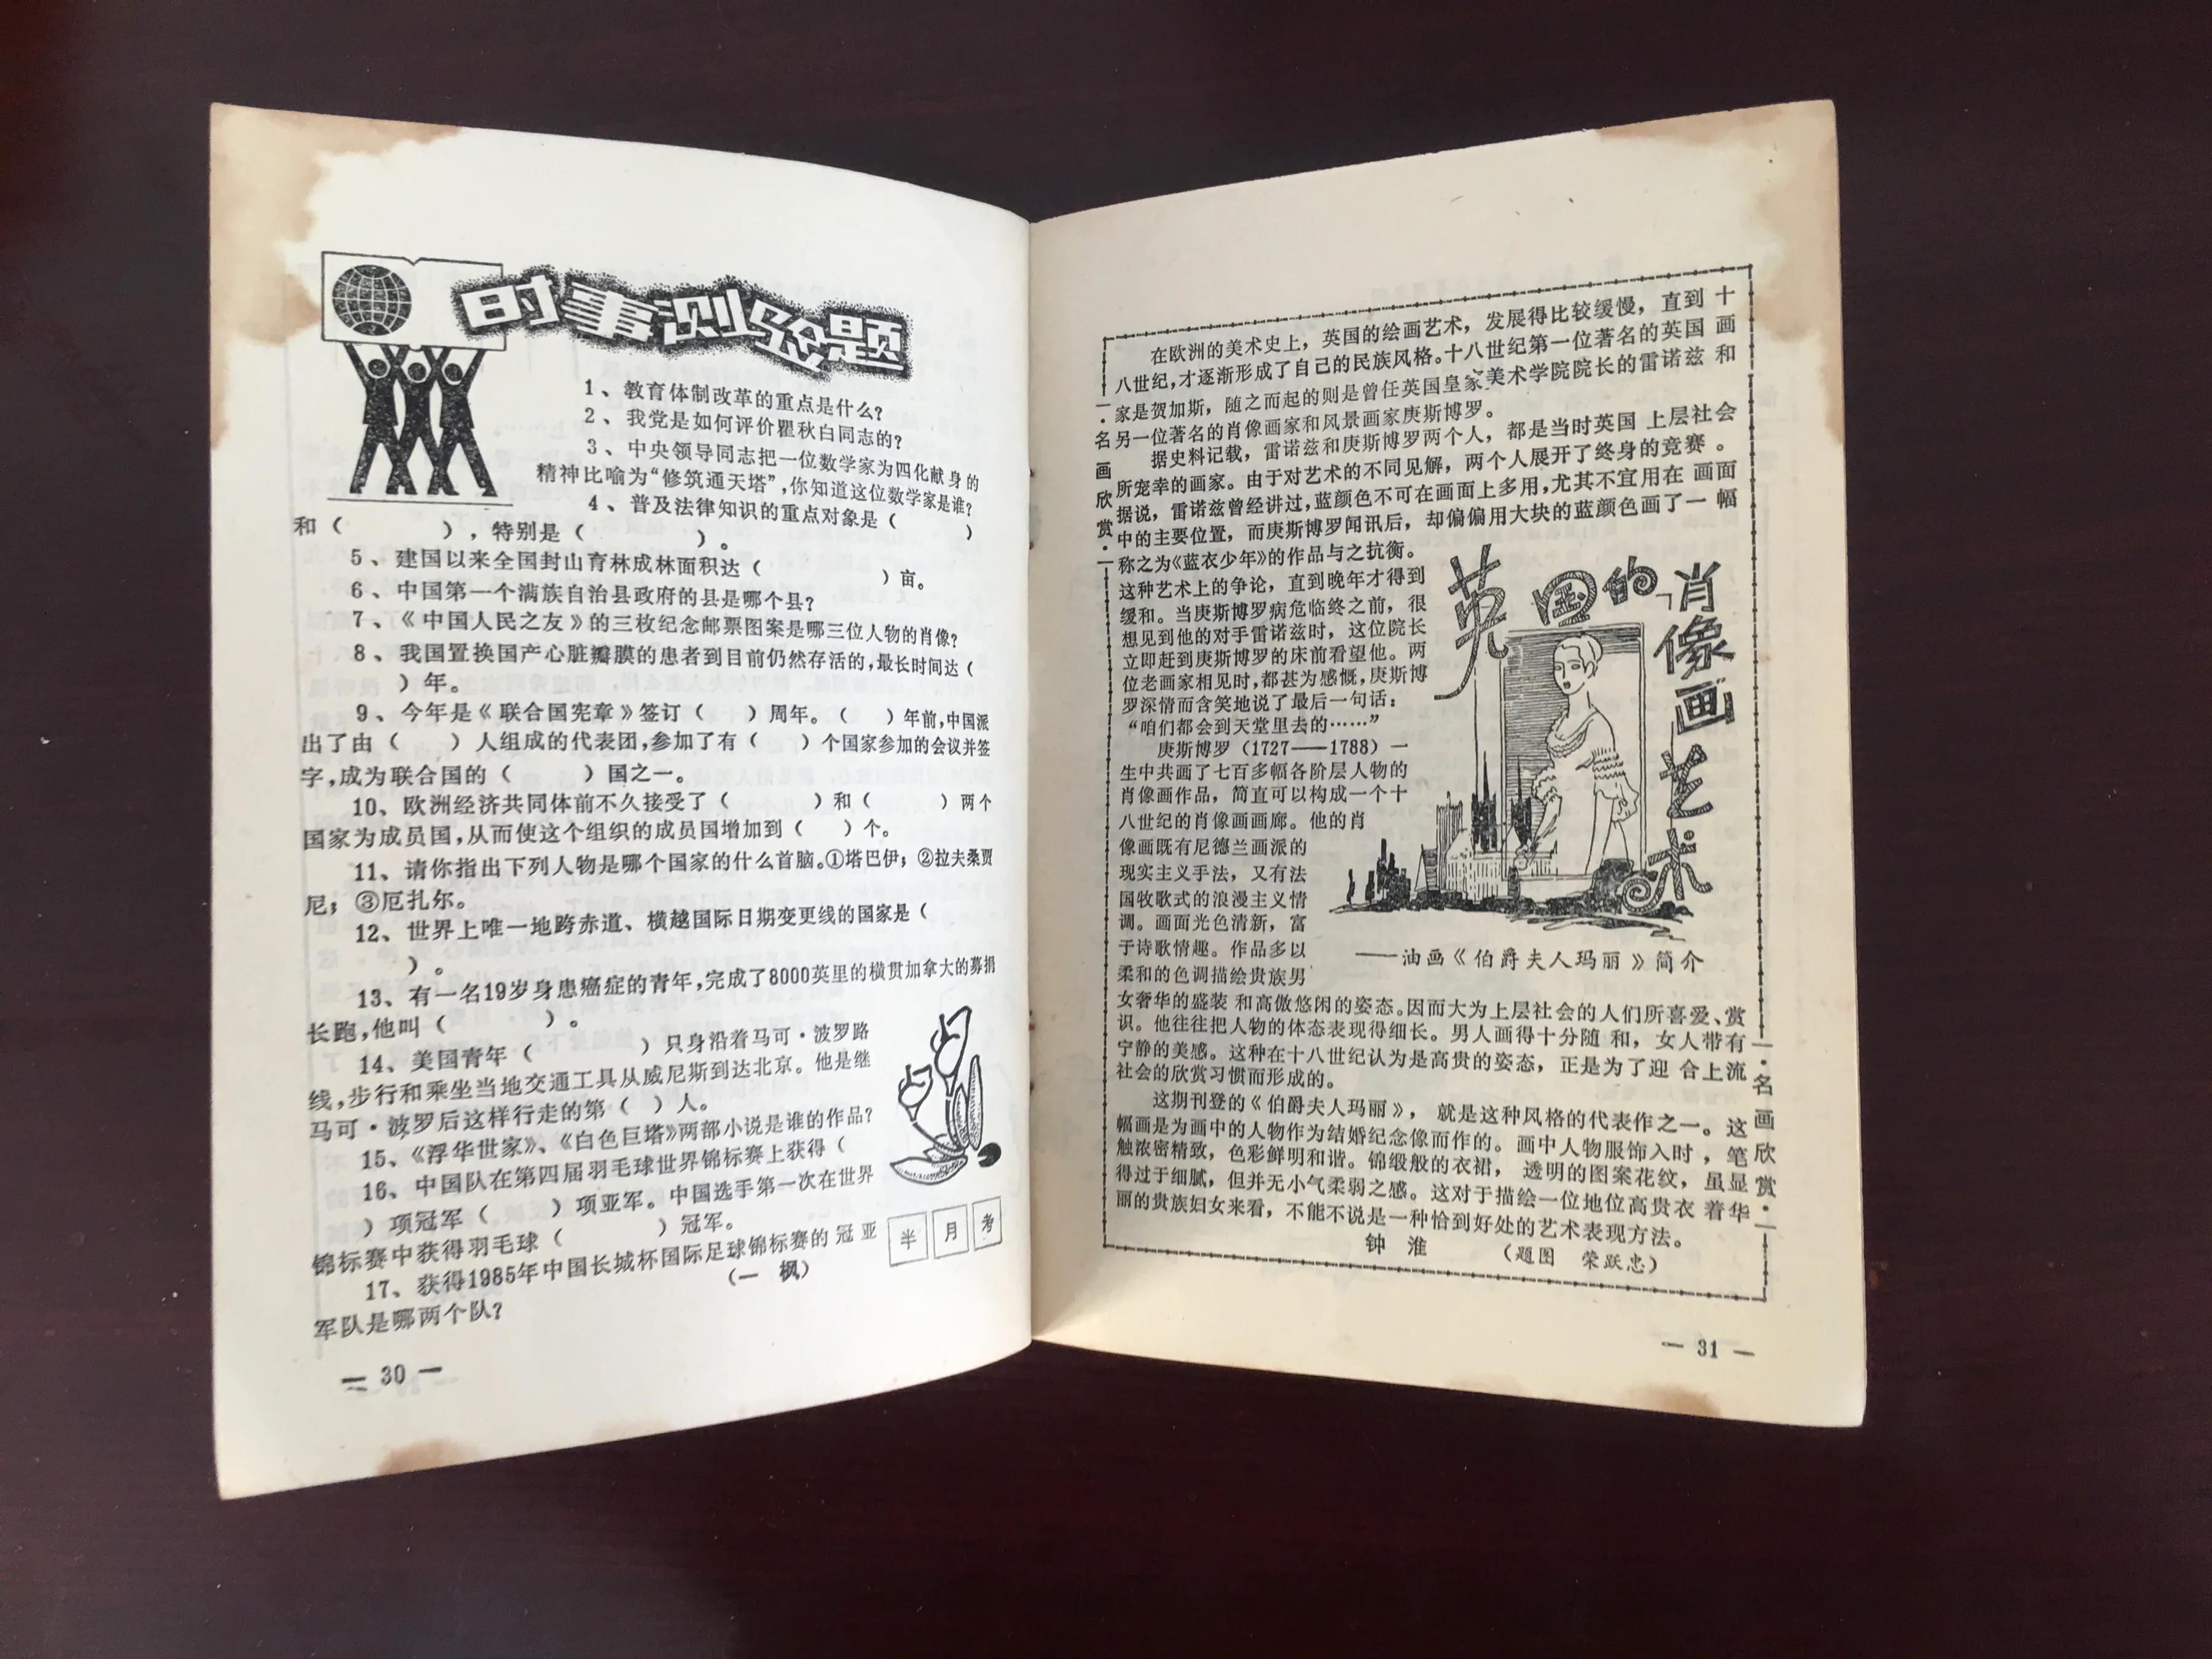 时事测验题
1、教育体制改革的重点是什么？
2、我党是如何评价瞿秋白同志的？
3、中央领导同志把一位数学家为四化献身的
精神比喻为“修筑通天塔”，你知道这位数学家是谁？
4、普及法律知识的重点对象是（　　）
和（　　），特别是（　　）。
5、建国以来全国封山育林成林面积达（　　）亩。
6、中国第一个满族自治县政府的县是哪个县？
7、《中国人民之友》的三枚纪念邮票图案是哪三位人物的肖像？
8、我国置换国产心脏瓣膜的患者到目前仍然存活的，最长时间达（
）年。
9、今年是《联合国宪章》签订（　　）周年。（　　）年前，中国派
出了由（　　）人组成的代表团，参加了有（　　）个国家参加的会议并签
字，成为联合国的（　　）国之一。
10、欧洲经济共同体前不久接受了（　　）和（　　）两个
国家为成员国，从而使这个组织的成员国增加到（　　）个。
11、请你指出下列人物是哪个国家的什么首脑。①塔巴伊；②拉夫桑贾
尼；③厄扎尔。
12、世界上唯一地跨赤道、横越国际日期变更线的国家是（
）。
13、有一名19岁身患癌症的青年，完成了8000英里的横贯加拿大的募捐
长跑，他叫（　　）。
14、美国青年（　　）只身沿着马可·波罗路
线，步行和乘坐当地交通工具从威尼斯到达北京。他是继
马可·波罗后这样行走的第（　）人。
15、《浮华世家》、《白色巨塔》两部小说是谁的作品？
16、中国队在第四届羽毛球世界锦标赛上获得（
）项冠军（　　）项亚军。中国选手第一次在世界
锦标赛中获得羽毛球（　　）冠军。
17、获得1985年中国长城杯国际足球锦标赛的冠亚
军队是哪两个队？
（一　枫）
半月考
— 30 —
在欧洲的美术史上，英国的绘画艺术，发展得比较缓慢，直到十
八世纪，才逐渐形成了自己的民族风格。十八世纪第一位著名的英国画
家是贺加斯，随之而起的则是曾任英国皇家美术学院院长的雷诺兹和
另一位著名的肖像画家和风景画家庚斯博罗。
据史料记载，雷诺兹和庚斯博罗两个人，都是当时英国上层社会
所宠幸的画家。由于对艺术的不同见解，两个人展开了终身的竞赛。
据说，雷诺兹曾经讲过，蓝颜色不可在画面上多用，尤其不宜用在画面
中的主要位置，而庚斯博罗闻讯后，却偏偏用大块的蓝颜色画了一幅
称之为《蓝衣少年》的作品与之抗衡。
这种艺术上的争论，直到晚年才得到
缓和。当庚斯博罗病危临终之前，很
想见到他的对手雷诺兹时，这位院长
立即赶到庚斯博罗的床前看望他。两
位老画家相见时，都甚为感慨，庚斯博
罗深情而含笑地说了最后一句话：
“咱们都会到天堂里去的……”
庚斯博罗（1727——1788）一
生中共画了七百多幅各阶层人物的
肖像画作品，简直可以构成一个十
八世纪的肖像画画廊。他的肖
像画既有尼德兰画派的
现实主义手法，又有法
国牧歌式的浪漫主义情
调。画面光色清新，富
于诗歌情趣。作品多以
柔和的色调描绘贵族男
女奢华的盛装和高傲悠闲的姿态。因而大为上层社会的人们所喜爱、赏
识。他往往把人物的体态表现得细长。男人画得十分随和，女人带有
宁静的美感。这种在十八世纪认为是高贵的姿态，正是为了迎合上流
社会的欣赏习惯而形成的。
这期刊登的《伯爵夫人玛丽》，就是这种风格的代表作之一。这
幅画是为画中的人物作为结婚纪念像而作的。画中人物服饰入时，笔
触浓密精致，色彩鲜明和谐。锦缎般的衣裙，透明的图案花纹，虽显
得过于细腻，但并无小气柔弱之感。这对于描绘一位地位高贵衣着华
丽的贵族妇女来看，不能不说是一种恰到好处的艺术表现方法。
钟　淮
（题图　荣跃忠）
英国的肖像画艺术
——油画《伯爵夫人玛丽》简介
·名画欣赏·
·名画欣赏·
— 31 —